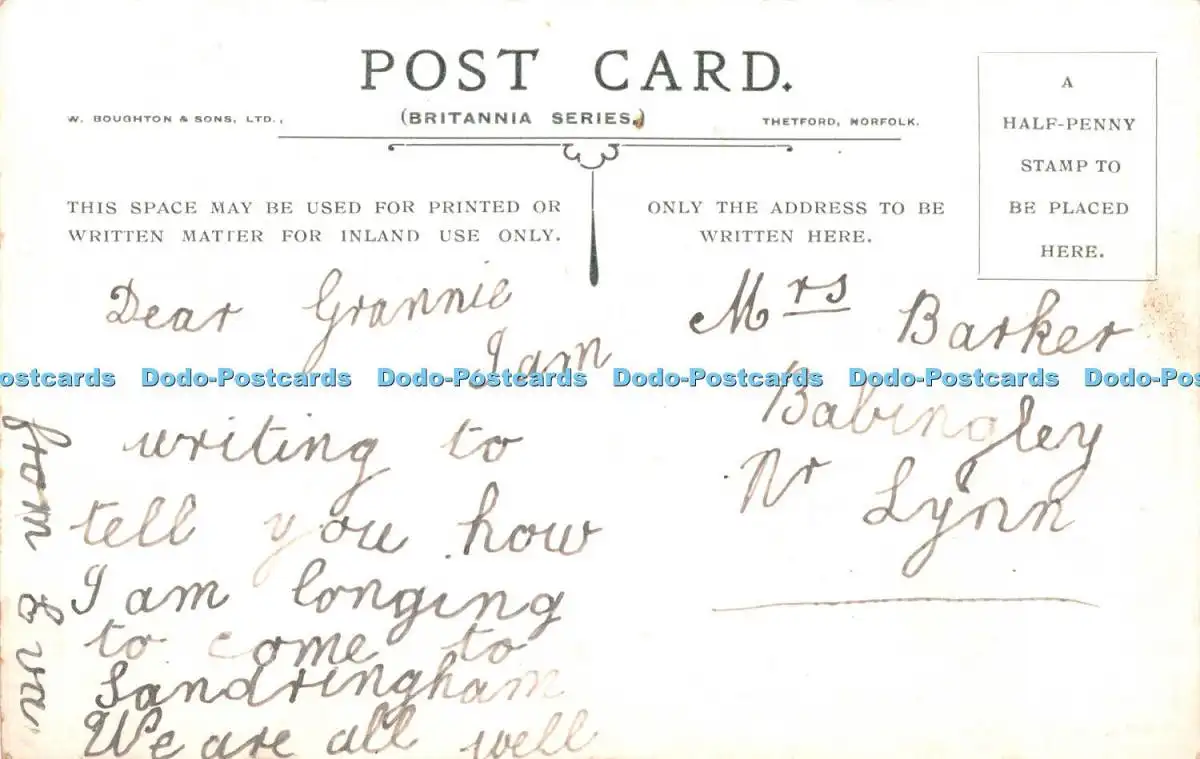 POST CARD.
W. BOUGHTON & SONS, LTD.,
(BRITANNIA SERIES.)
THETFORD, NORFOLK.
A
HALF-PENNY
STAMP TO
BE PLACED
HERE.
THIS SPACE MAY BE USED FOR PRINTED OR
WRITTEN MATTER FOR INLAND USE ONLY.
ONLY THE ADDRESS TO BE
WRITTEN HERE.
Dear Grannie
I am
writing to
tell you how
I am longing
to come to
Sandringham
We are all well
from Eva
Mrs Barker
Babingley
Nr Lynn
ostcards Dodo-Postcards Dodo-Postcards Dodo-Postcards Dodo-Postcards Dodo-Pos